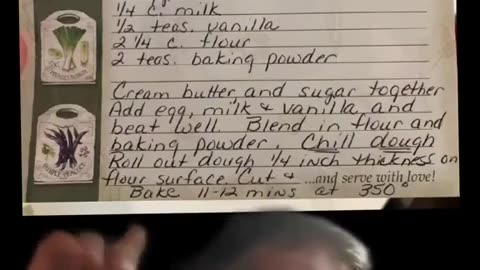 1/4 c. milk
1/2 teas. vanilla
2 1/4 c. flour
2 teas. baking powder
Cream butter and sugar together
Add egg, milk & vanilla, and
beat well. Blend in flour and
baking powder. Chill dough
Roll out dough 1/4 inch thickness on
flour surface. Cut & ...and serve with love!
Bake 11-12 mins at 350°